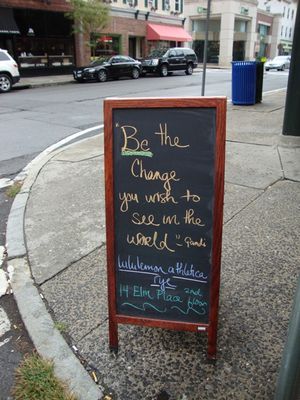 "Be the
Change
you wish to
see in the
world" - Gandi
lululemon athletica
rye
14 Elm Place 2nd floor